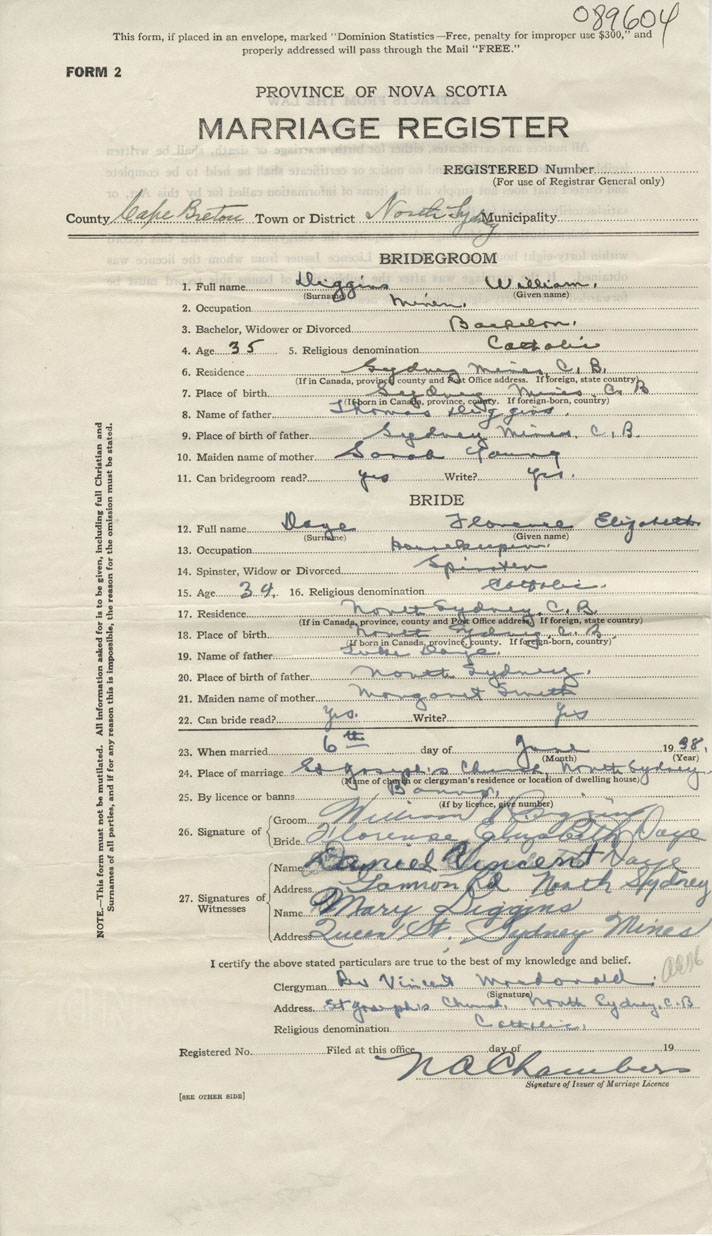 089604
This form, if placed in an envelope, marked "Dominion Statistics—Free, penalty for improper use $300," and
properly addressed will pass through the Mail "FREE."
FORM 2
PROVINCE OF NOVA SCOTIA
MARRIAGE REGISTER
REGISTERED Number
(For use of Registrar General only)
County Cape Breton Town or District North Sydney Municipality
BRIDEGROOM
1. Full name Diggins William.
(Surname) (Given name)
2. Occupation Miner.
3. Bachelor, Widower or Divorced Bachelor.
4. Age 35 5. Religious denomination Catholic
6. Residence Sydney Mines, C. B.
(If in Canada, province, county and Post Office address. If foreign, state country)
7. Place of birth Sydney Mines, C. B
(If born in Canada, province, county. If foreign-born, country)
8. Name of father Thomas Diggins.
9. Place of birth of father Sydney Mines, C. B.
10. Maiden name of mother Sarah Young
11. Can bridegroom read? yes Write? yes.
BRIDE
12. Full name Daye Florence Elizabeth
(Surname) (Given name)
13. Occupation Housekeeper.
14. Spinster, Widow or Divorced Spinster
15. Age 34. 16. Religious denomination Catholic.
17. Residence North Sydney, C. B
(If in Canada, province, county and Post Office address. If foreign, state country)
18. Place of birth North Sydney, C. B
(If born in Canada, province, county. If foreign-born, country)
19. Name of father Luke Daye.
20. Place of birth of father North Sydney.
21. Maiden name of mother Margaret Smith
22. Can bride read? Yes. Write? Yes
23. When married 6th day of June 1938.
(Month) (Year)
24. Place of marriage St Joseph's Church, North Sydney.
(Name of church or clergyman's residence or location of dwelling house)
25. By licence or banns Banns.
(If by licence, give number)
26. Signature of Groom William Diggins
Bride Florence Elizabeth Daye
27. Signatures of Witnesses
Name Daniel Vincent Daye
Address Rd North Sydney
Name Mary Diggins
Address Queen St. Sydney Mines
I certify the above stated particulars are true to the best of my knowledge and belief.
Clergyman Vincent Macdonald.
(Signature)
Address St Joseph's Church, North Sydney, C. B
Religious denomination Catholic.
Registered No. Filed at this office day of 19
N A Chambers
Signature of Issuer of Marriage Licence
[SEE OTHER SIDE]
NOTE.—This form must not be mutilated. All Information asked for is to be given, including full Christian and
Surnames of all parties, and if for any reason this is impossible, the reason for the omission must be stated.